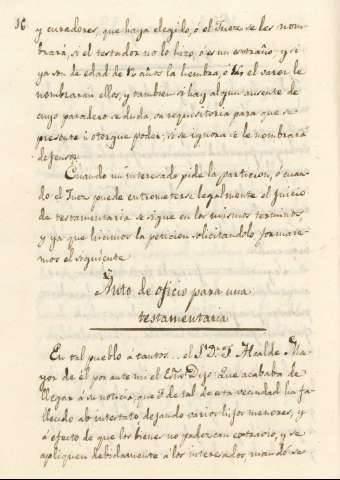 36
y curadores, que haya elegido, ó el Juez se les nom-
brará, si el testador no lo hizo, ó es un extraño, y si
ya son de edad de 12 años la hembra, ó 14 el varon le
nombraran ellos, y tambien si hay algun ausente de
cuyo paradero se duda, va requisitoria para que se
presente ú otorgue poder, si se ignora se le nombrará
defensor.
Cuando un interesado pide la particion, ó cuan-
do el Juez puede entrometerse legalmente el Juicio
de testamentaria se sigue en los mismos terminos,
y ya que hicimos la peticion solicitandolo formare-
mos el siguiente
Auto de oficio para una
testamentaria
En tal pueblo á tantos... el Sr. D. F. Alcalde Ma-
yor de él por ante mi el Esno Dijo: Que acababa de
llegar á su noticia, que F. de tal de esta vecindad ha fa-
llecido ab intestato dejando varios hijos menores, y
á efecto de que los bienes no padezcan extravio, y se
apliquen debidamente á los interesados mandó se